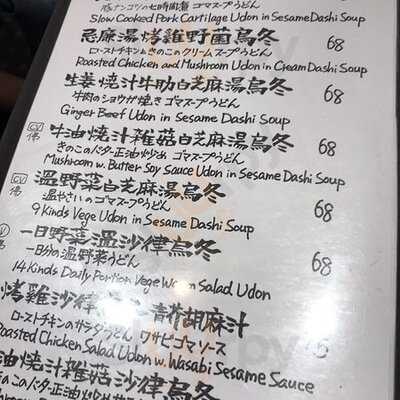 豚ナンコツの七時間煮 ゴマスープうどん
Slow Cooked Pork Cartilage Udon in Sesame Dashi Soup
忌廉湯烤雞野菌烏冬 68
ローストチキンときのこのクリームスープうどん
Roasted Chicken and Mushroom Udon in Cream Dashi Soup
生姜燒汁牛肋白芝麻湯烏冬 68
牛肉のショウガ焼き ゴマスープうどん
Ginger Beef Udon in Sesame Dashi Soup
牛油燒汁雜菇白芝麻湯烏冬 68
きのこのバター正油炒め ゴマスープうどん
Mushroom w. Butter Soy Sauce Udon in Sesame Dashi Soup
溫野菜白芝麻湯烏冬 68
温やさいのゴマスープうどん
9 Kinds Vege Udon in Sesame Dashi Soup
一日野菜溫沙律烏冬 68
一日分の温野菜うどん
14 Kinds Daily Portion Vege Warm Salad Udon
烤雞沙律 青芥胡麻汁
ローストチキンのサラダうどん ワサビゴマソース
Roasted Chicken Salad Udon w. Wasabi Sesame Sauce
油燒汁雜菇沙律烏冬
きのこのバター正油炒め